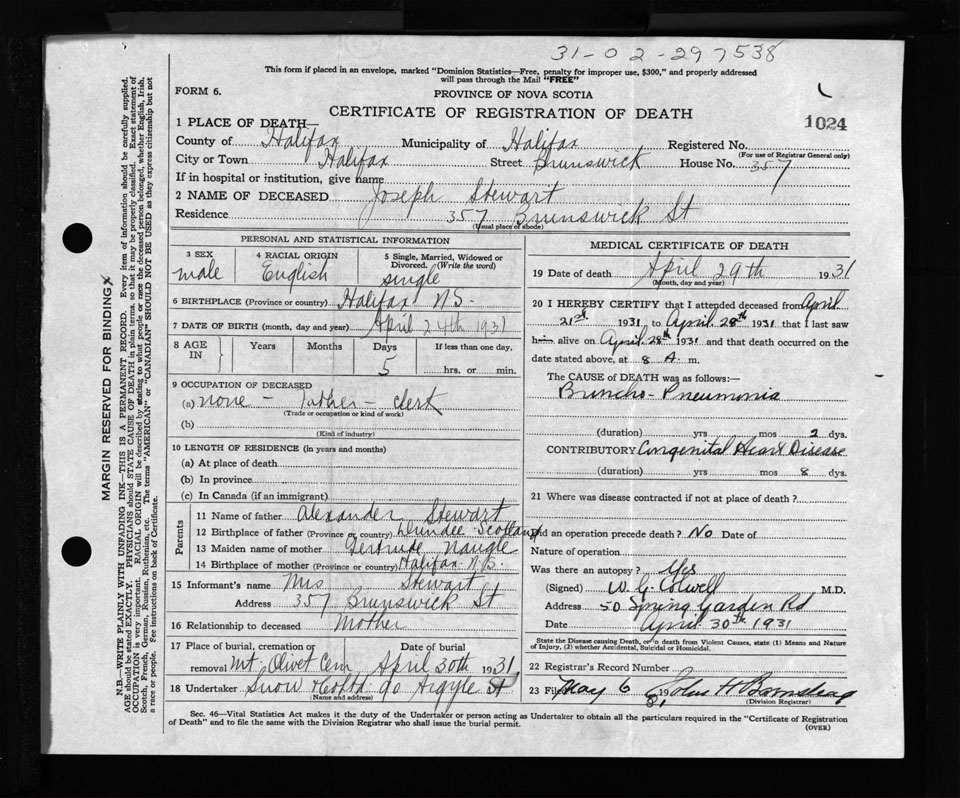 31-02-297538
This form if placed in an envelope, marked "Dominion Statistics—Free, penalty for improper use, $300," and properly addressed
will pass through the Mail "FREE"
FORM 6.
PROVINCE OF NOVA SCOTIA
CERTIFICATE OF REGISTRATION OF DEATH
1024
1 PLACE OF DEATH—
County of Halifax Municipality of Halifax Registered No.
(For use of Registrar General only)
City or Town Halifax Street Brunswick House No. 357
If in hospital or institution, give name
2 NAME OF DECEASED Joseph Stewart
Residence 357 Brunswick St
(Usual place of abode)
PERSONAL AND STATISTICAL INFORMATION
3 SEX male
4 RACIAL ORIGIN English
5 Single, Married, Widowed or Divorced. (Write the word) single
6 BIRTHPLACE (Province or country) Halifax N.S.
7 DATE OF BIRTH (month, day and year) April 24th 1931
8 AGE IN Years Months Days 5 If less than one day, hrs. or min.
9 OCCUPATION OF DECEASED
(a) none - Father - clerk
(Trade or occupation or kind of work)
(b)
(Kind of industry)
10 LENGTH OF RESIDENCE (in years and months)
(a) At place of death
(b) In province
(c) In Canada (if an immigrant)
Parents
11 Name of father Alexander Stewart
12 Birthplace of father (Province or country) Dundee Scotland
13 Maiden name of mother Gertrude Naugle
14 Birthplace of mother (Province or country) Halifax
15 Informant's name Mrs Stewart
Address 357 Brunswick St
16 Relationship to deceased Mother
17 Place of burial, cremation or removal Mt. Olivet Cem Date of burial April 30th 1931
18 Undertaker Snow Argyle St
(Name and address)
MEDICAL CERTIFICATE OF DEATH
19 Date of death April 29th 1931
(Month, day and year)
20 I HEREBY CERTIFY that I attended deceased from April
21st 1931 to April 28th 1931 that I last saw
h alive on April 28th 1931 and that death occurred on the
date stated above, at 8 A. m.
The CAUSE of DEATH was as follows:—
Broncho-Pneumonia
(duration) yrs mos 2 dys.
CONTRIBUTORY Congenital Heart Disease
(duration) yrs mos 8 dys.
21 Where was disease contracted if not at place of death?
Did an operation precede death? No Date of
Nature of operation
Was there an autopsy? Yes
(Signed) W. G. Colwell M.D.
Address 50 Spring Garden Rd
Date April 30th 1931
State the Disease causing Death, or in death from Violent Causes, state (1) Means and Nature
of Injury, (2) whether Accidental, Suicidal or Homicidal.
22 Registrar's Record Number
23 Filed May 6 1931 John H
(Division Registrar)
Sec. 46—Vital Statistics Act makes it the duty of the Undertaker or person acting as Undertaker to obtain all the particulars required in the "Certificate of Registration
of Death" and to file the same with the Division Registrar who shall issue the burial permit.
(OVER)
MARGIN RESERVED FOR BINDING
N.B.—WRITE PLAINLY WITH UNFADING INK—THIS IS A PERMANENT RECORD. Every item of information should be carefully supplied.
AGE should be stated EXACTLY. PHYSICIANS should STATE CAUSE OF DEATH in plain terms, so that it may be properly classified. Exact statement of
OCCUPATION is very important. RACIAL ORIGIN will be described by stating to what people or race the deceased person belonged, whether English, Irish,
Scotch, French, German, Russian, Ruthenian, etc. The terms "AMERICAN" or "CANADIAN" SHOULD NOT BE USED as they express citizenship but not
a race or people. See instructions on back of Certificate.